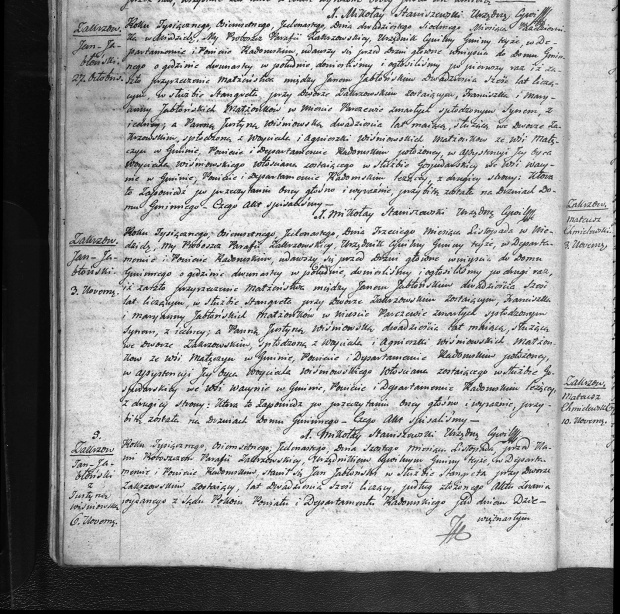 X. Mikołay Staniszewski Urzędnik Cywil.
Zakrzow.
Jan Jabłoński
27. Octobris.
Roku Tysiącznego, Osiemsetnego, Jedenastego, Dnia dwudziestego Siodmego Miesiąca Październi
ka w Niedzielę, My Proboszcz Parafii Zakrzowskiey, Urzędnik Cywilny Gminy teyże, w De-
partamencie i Powiecie Radomskim, udawszy się przed Drzwi głowne weyścia do Domu Gmin-
nego o godzinie dwunastey w południe, donieśliśmy i ogłosiliśmy po pierwszy raz iż za-
szło przyrzeczenie Małżeństwa między Janem Jabłońskim Dwadzieścia Sześć lat liczą-
cym, w służbie Stangreta, przy Dworze Zakrzowskim zostaiącym, Franciszka i Mary-
anny Jabłońskich Małżonkow w Mieście Parczewie zmarłych spłodzonym Synem, z
iedney; a Panną Justyną Wiśniowską, dwadzieścia lat maiącą, służącą we Dworze Za-
krzowskim, spłodzoną z Woyciecha i Agnieszki Wiśniowskich Małżonkow ze wsi Małę-
czyn w Gminie, Powiecie i Departamencie Radomskim położoney, w assystencyi Jey Oyca
Woyciecha Wiśniowskiego Włościana zostaiącego w Służbie Gospodarskiey we Wsi Wacy-
nie w Gminie, Powiecie i Departamencie Radomskim leżącey, z drugiey strony: Która
to Zapowiedź po przeczytaniu oney głośno i wyraźnie, przybitą została na Drzwiach Do-
mu Gminnego – Czego Akt spisaliśmy –
X. Mikołay Staniszewski Urzędny Cywil.
Zakrzow.
Jan Jabłoński
3. Novemb.
Roku Tysiącznego, Osiemsetnego, Jedenastego, Dnia Trzeciego Miesiąca Listopada w Nie-
dzielę, My Proboszcz Parafii Zakrzowskiey, Urzędnik Cywilny Gminy teyże w Departa-
mencie i Powiecie Radomskim, udawszy się przed Drzwi głowne weyścia do Domu
Gminnego o godzinie dwunastey w południe, donieśliśmy i ogłosiliśmy po drugi raz,
iż zaszło przyrzeczenie Małżeństwa między Janem Jabłońskim dwadzieścia Sześć
lat liczącym, w służbie Stangreta, przy Dworze Zakrzowskim zostaiącym, Franciszka
i Maryanny Jabłońskich Małżonkow w mieście Parczewie zmarłych spłodzonym
Synem, z iedney; a Panną Justyną Wiśniowską, dwadzieścia lat maiącą, służącą
we Dworze Zakrzowskim, spłodzoną z Woyciecha i Agnieszki Wiśniowskich Małżon-
kow ze wsi Małęczyn w Gminie, Powiecie i Departamencie Radomskim położoney,
w assystencyi Jey Oyca Woyciecha Wiśniowskiego Włościana zostaiącego w Służbie Go-
spodarskiey we Wsi Wacynie w Gminie, Powiecie i Departamencie Radomskim leżącey,
z drugiey strony: Która to Zapowiedź po przeczytaniu oney głośno i wyraźnie, przy-
bitą została na Drzwiach Domu Gminnego – Czego Akt Spisaliśmy –
X. Mikołay Staniszewski Urzędny Cywil.
9.
Zakrzow
Jan Jabłoński
z
Justyną
Wiśniowską
6. Novemb.
Roku Tysiącznego, Osiemsetnego, Jedenastego, Dnia Szostego miesiąca Listopada, przed Na-
mi Proboszczem Parafii Zakrzowskiey, Urzędnikiem Cywilnym Gminy teyże w Departa-
mencie i Powiecie Radomskim, stawił się Jan Jabłoński w Służbie Stangreta przy Dworze
Zakrzowskim zostaiący, lat Dwadzieścia Sześć liczący, podług złożonego Aktu Znania
wydanego z Sądu Pokoiu Powiatu i Departamentu Radomskiego pod dniem Dzie-
więtnastym
Zakrzow.
Mateusz
Chmielewski
3. Novemb.
Zakrzow.
Mateusz
Chmielewski
10. Novemb.